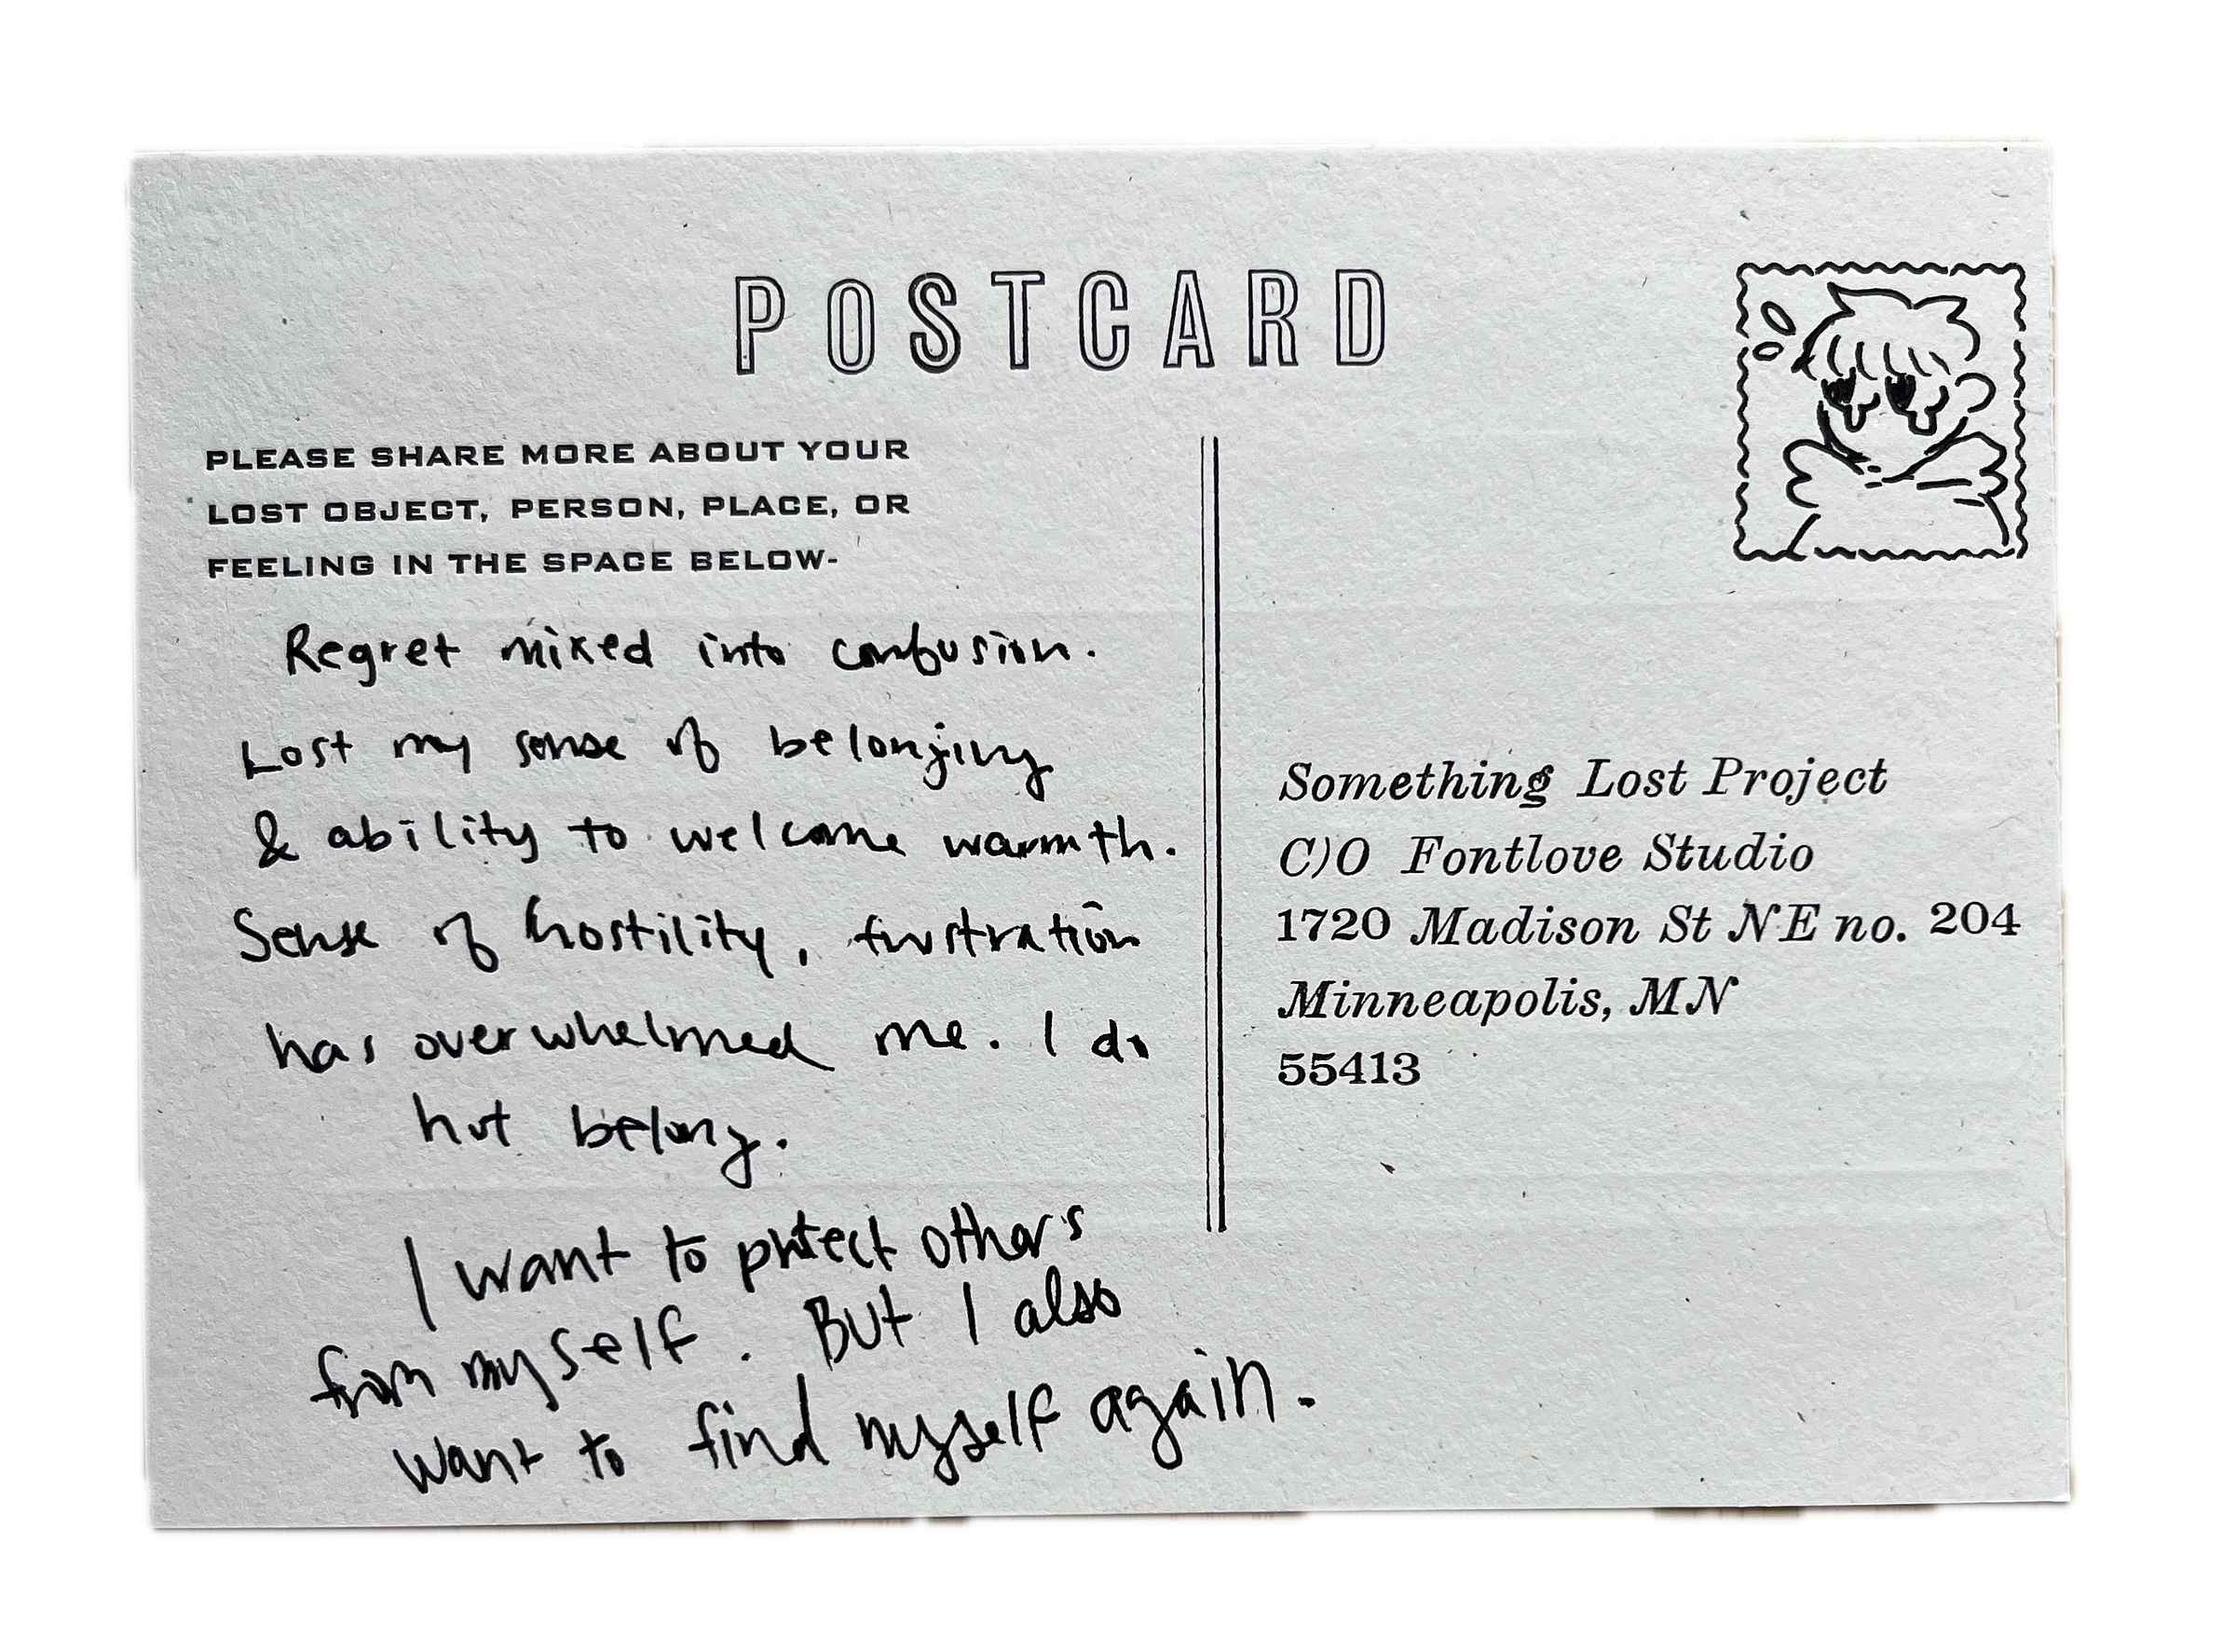 POSTCARD
PLEASE SHARE MORE ABOUT YOUR
LOST OBJECT, PERSON, PLACE, OR
FEELING IN THE SPACE BELOW-
Regret mixed into confusion.
Lost my sense of belonging
& ability to welcome warmth.
Sense of hostility, frustration
has overwhelmed me. I do
not belong.
I want to protect others
from myself. But I also
want to find myself again.
Something Lost Project
C/O Fontlove Studio
1720 Madison St NE no. 204
Minneapolis, MN
55413